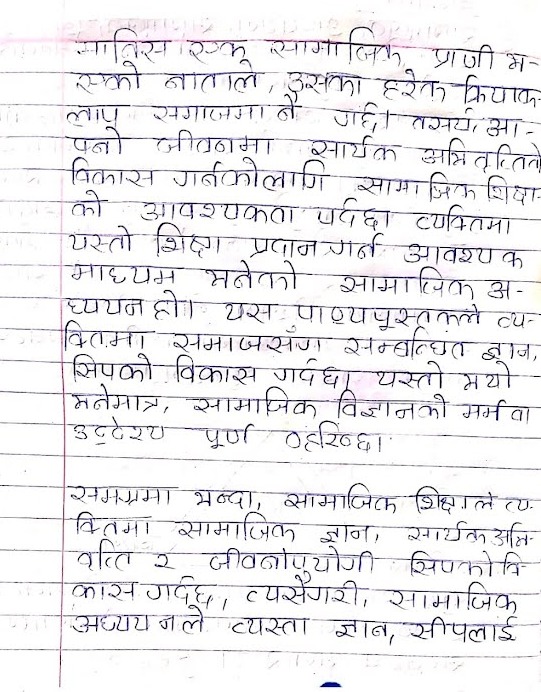 मानिस एक सामाजिक प्राणी भ-
एको नाताले, उसका हरेक क्रियाक-
लाप समाजमा नै गर्छ। तसर्थ, आ-
फ्नो जीवनमा सार्थक अभिवृत्तिको
विकास गर्नकोलागि सामाजिक शिक्षा-
को आवश्यकता पर्दछ। व्यक्तिमा
यस्तो शिक्षा प्रदान गर्न आवश्यक
माध्यम भनेको सामाजिक अ-
ध्ययन हो। यस पाठ्यपुस्तकले व्य-
क्तिमा समाजसँग सम्बन्धित ज्ञान,
सिपको विकास गर्दछ। यस्तो भयो
भनेमात्र, सामाजिक विज्ञानको मर्म वा
उद्देश्य पूर्ण ठहरिन्छ।
समग्रमा भन्दा, सामाजिक शिक्षाले व्य-
क्तिमा सामाजिक ज्ञान, सार्थक अभि-
वृत्ति र जीवनोपयोगी सिपको वि-
कास गर्दछ, त्यसैगरी, सामाजिक
अध्ययनले त्यस्ता ज्ञान, सीपलाई